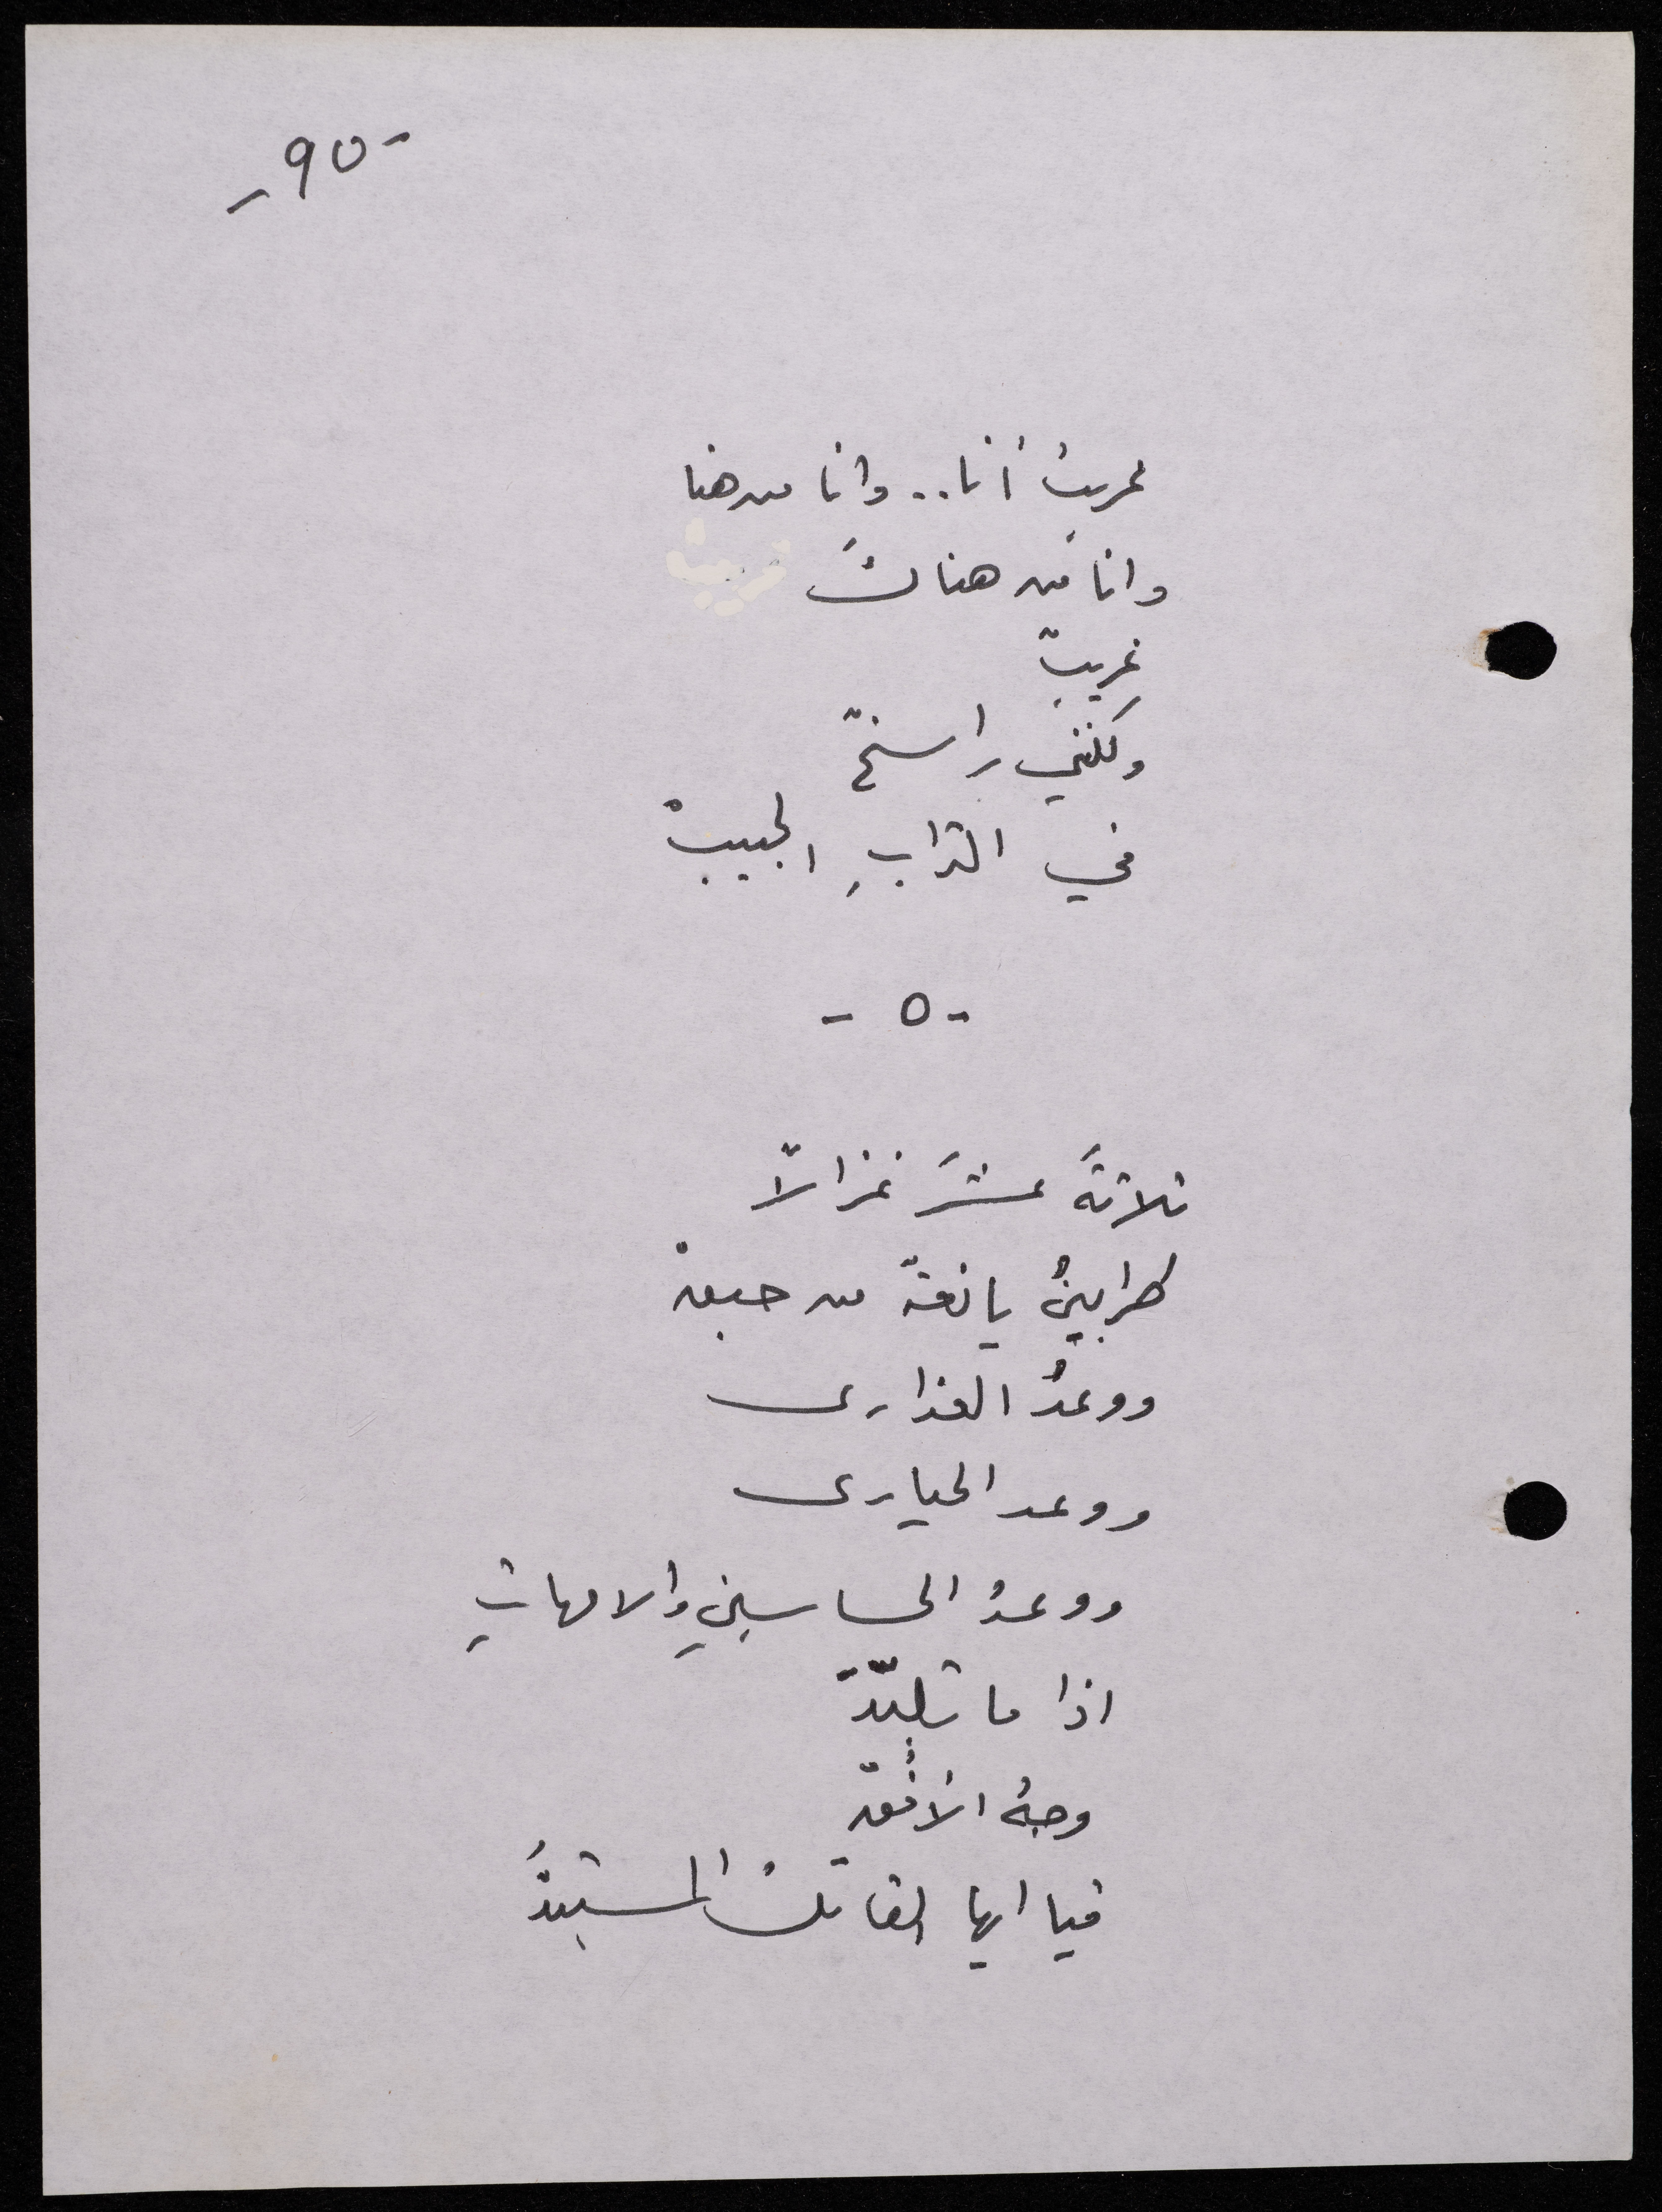 -٩٥-
غريبٌ أنا.. وأنا من هنا
وانا من هناكَ
غريبٌ
ولكنني راسخٌ
في الترابِ الحبيبْ
-٥-
ثلاثةَ عشرَ غزالاً
طرابينُ يانعةٌ من حبقْ
ووعدُ العذارى
ووعد الحيارى
ووعدُ الحساسينِ والامهاتِ
اذا ما تلبّدَ
وجهُ الأفُقْ
فيا ايها الفاتكُ المستبدُّ